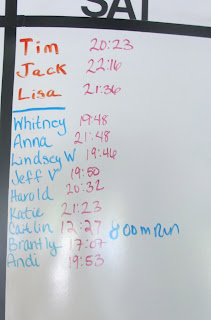 SAT
Tim 20:23
Jack 22:16
Lisa 21:36
Whitney 19:48
Anna 21:48
Lindsey W 19:46
Jeff V 19:50
Harold 20:32
Katie 21:23
Caitlin 12:27 800m run
Brantly 17:07
Andi 19:53